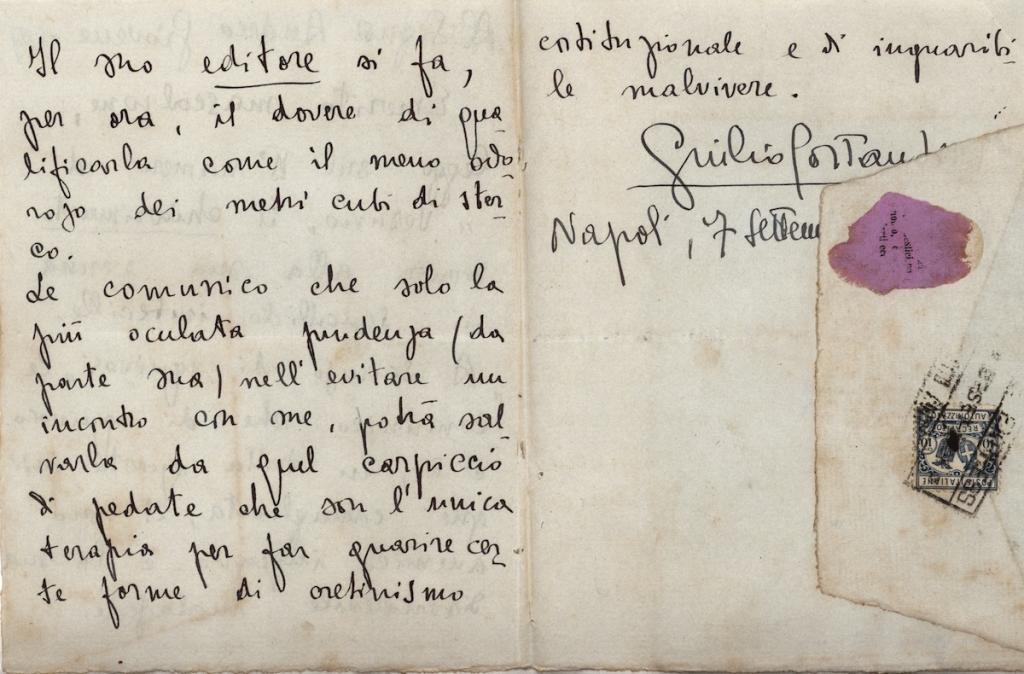 Il suo editore si fa,
per, ora, il dovere di qua
lificarla come il meno odo-
rojo dei metri cubi di ster-
co.
Le comunico che solo la
più oculata prudenza (da
parte sua) nell'evitare un
incontro con me, potrà sal-
varla da quel carpiccio
di pedate che son l'unica
terapia per far guarire cer-
te forme di cretinismo
costituzionale e di inguaribi-
le malvivere.
Giulio
Napoli, 7 Settem
POSTE ITALIANE
RECAPITO
AUTORIZZA
10